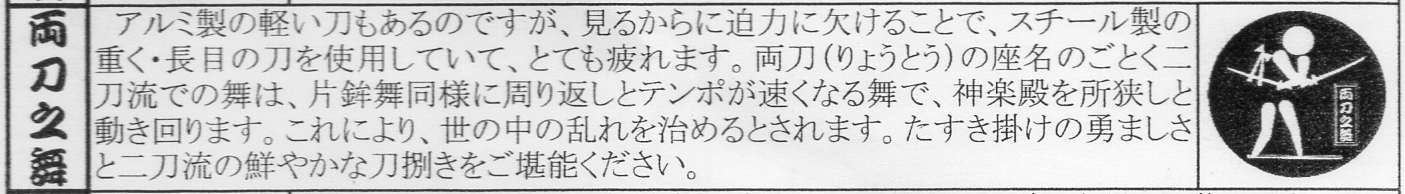 両刀之舞
アルミ製の軽い刀もあるのですが、見るからに迫力に欠けることで、スチール製の
重く・長目の刀を使用していて、とても疲れます。両刀（りょうとう）の座名のごとく二
刀流での舞は、片鉾舞同様に周り返しとテンポが速くなる舞で、神楽殿を所狭しと
動き回ります。これにより、世の中の乱れを治めるとされます。たすき掛けの勇ましさ
と二刀流の鮮やかな刀捌きをご堪能ください。
両刀之舞